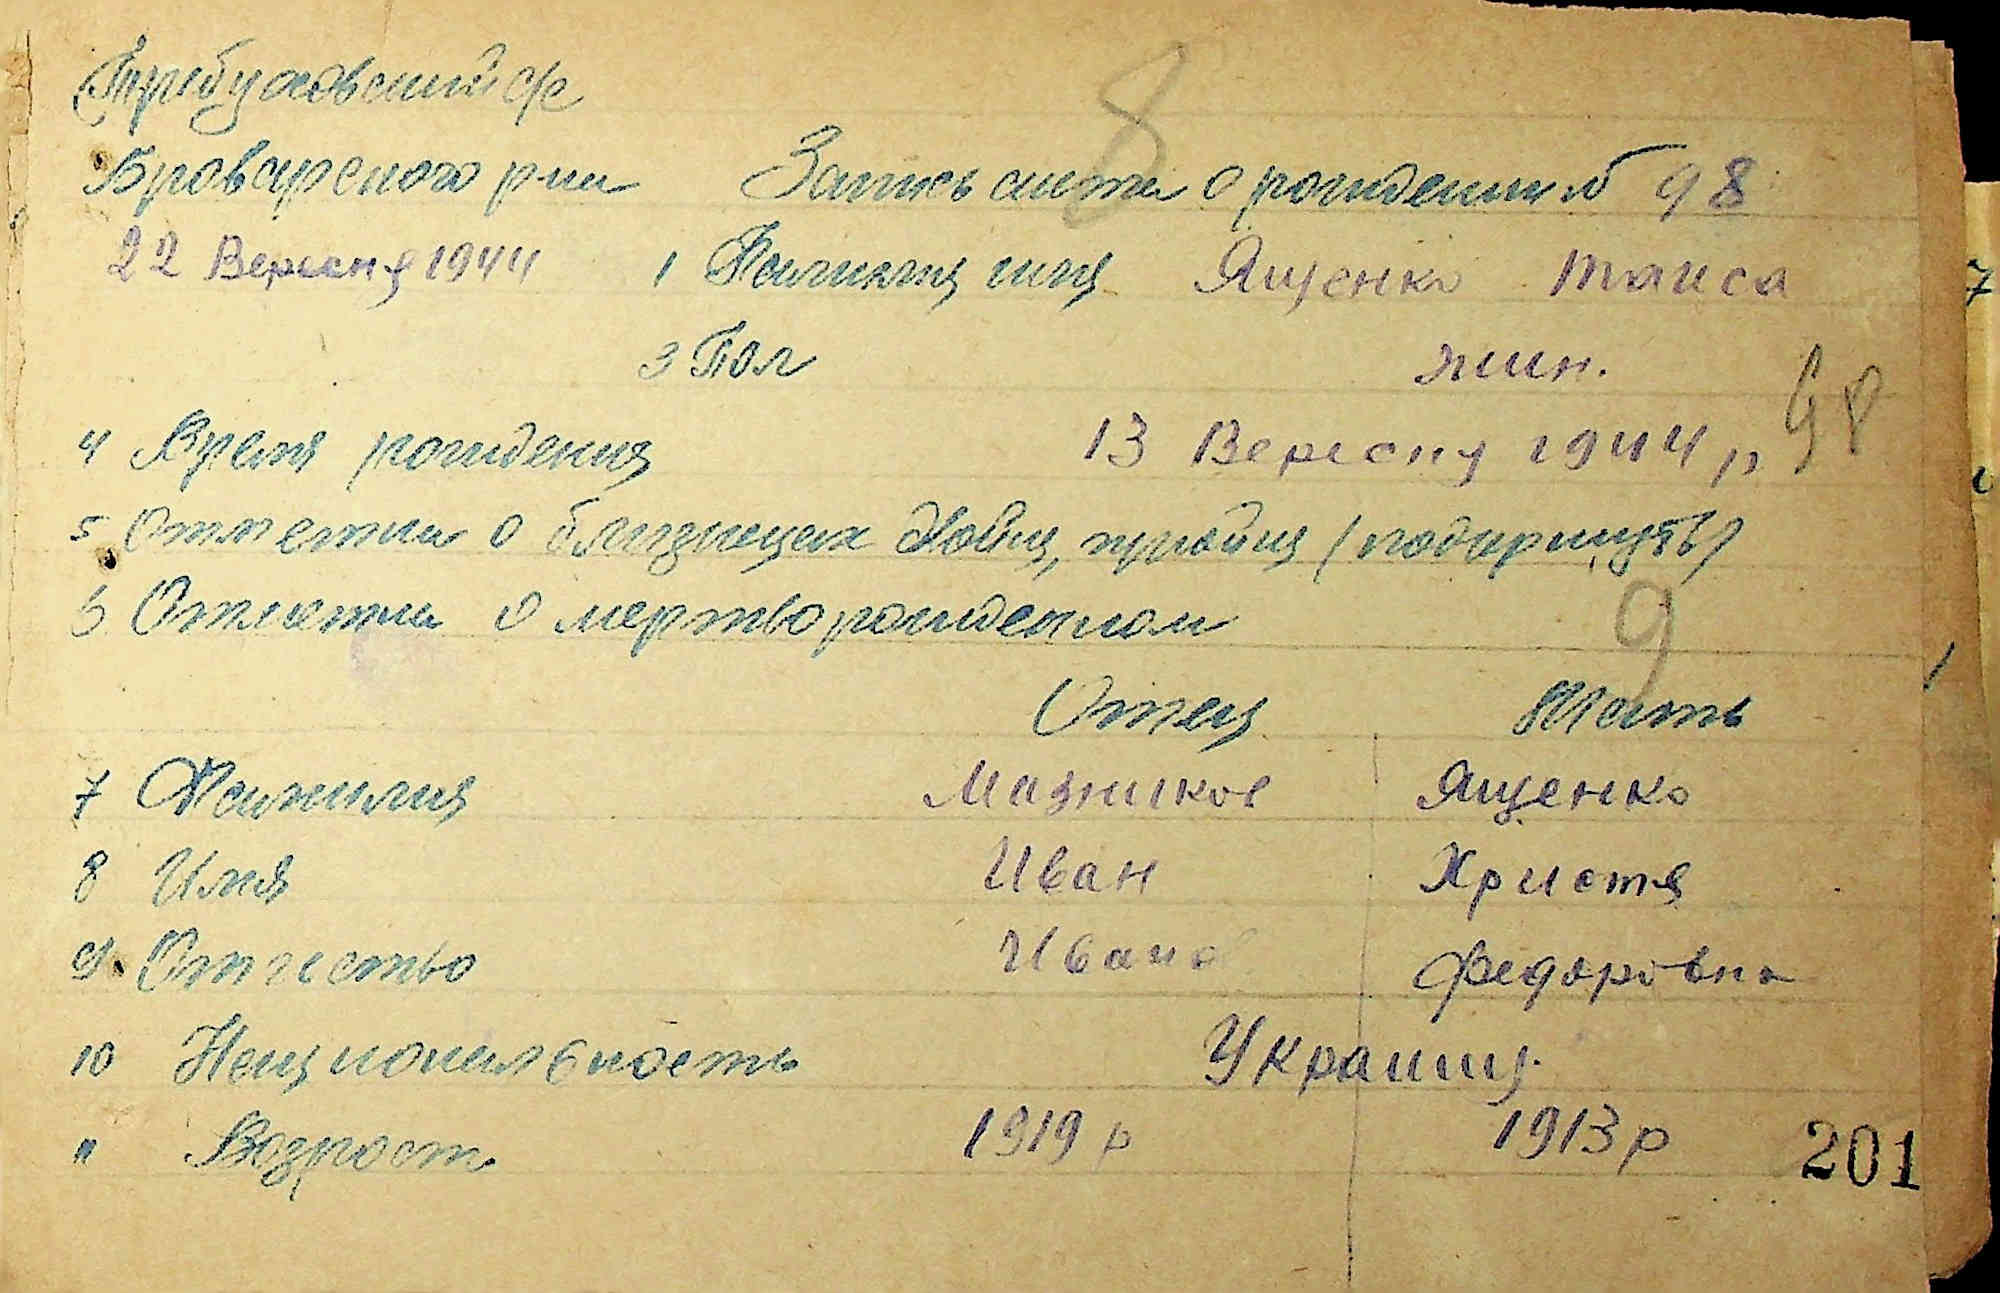 Требуховский с/с
Броварского р-на Запись акта о рождении № 98
22 Вересня 1944 1 Фамилия имя Ященко Таиса
3 Пол жин.
4 Время рождения 13 Вересня 1944 р
98
5 Отметки о близнецах двойня, тройня (подчеркнуть)
6 Отметка о мертворожденном
8
9
Отец Мать
7 Фамилия Ященко
8 Имя Иван Христя
9. Отчество Федоровна
10 Национальность
" Возрост 1919 р 1913 р
201